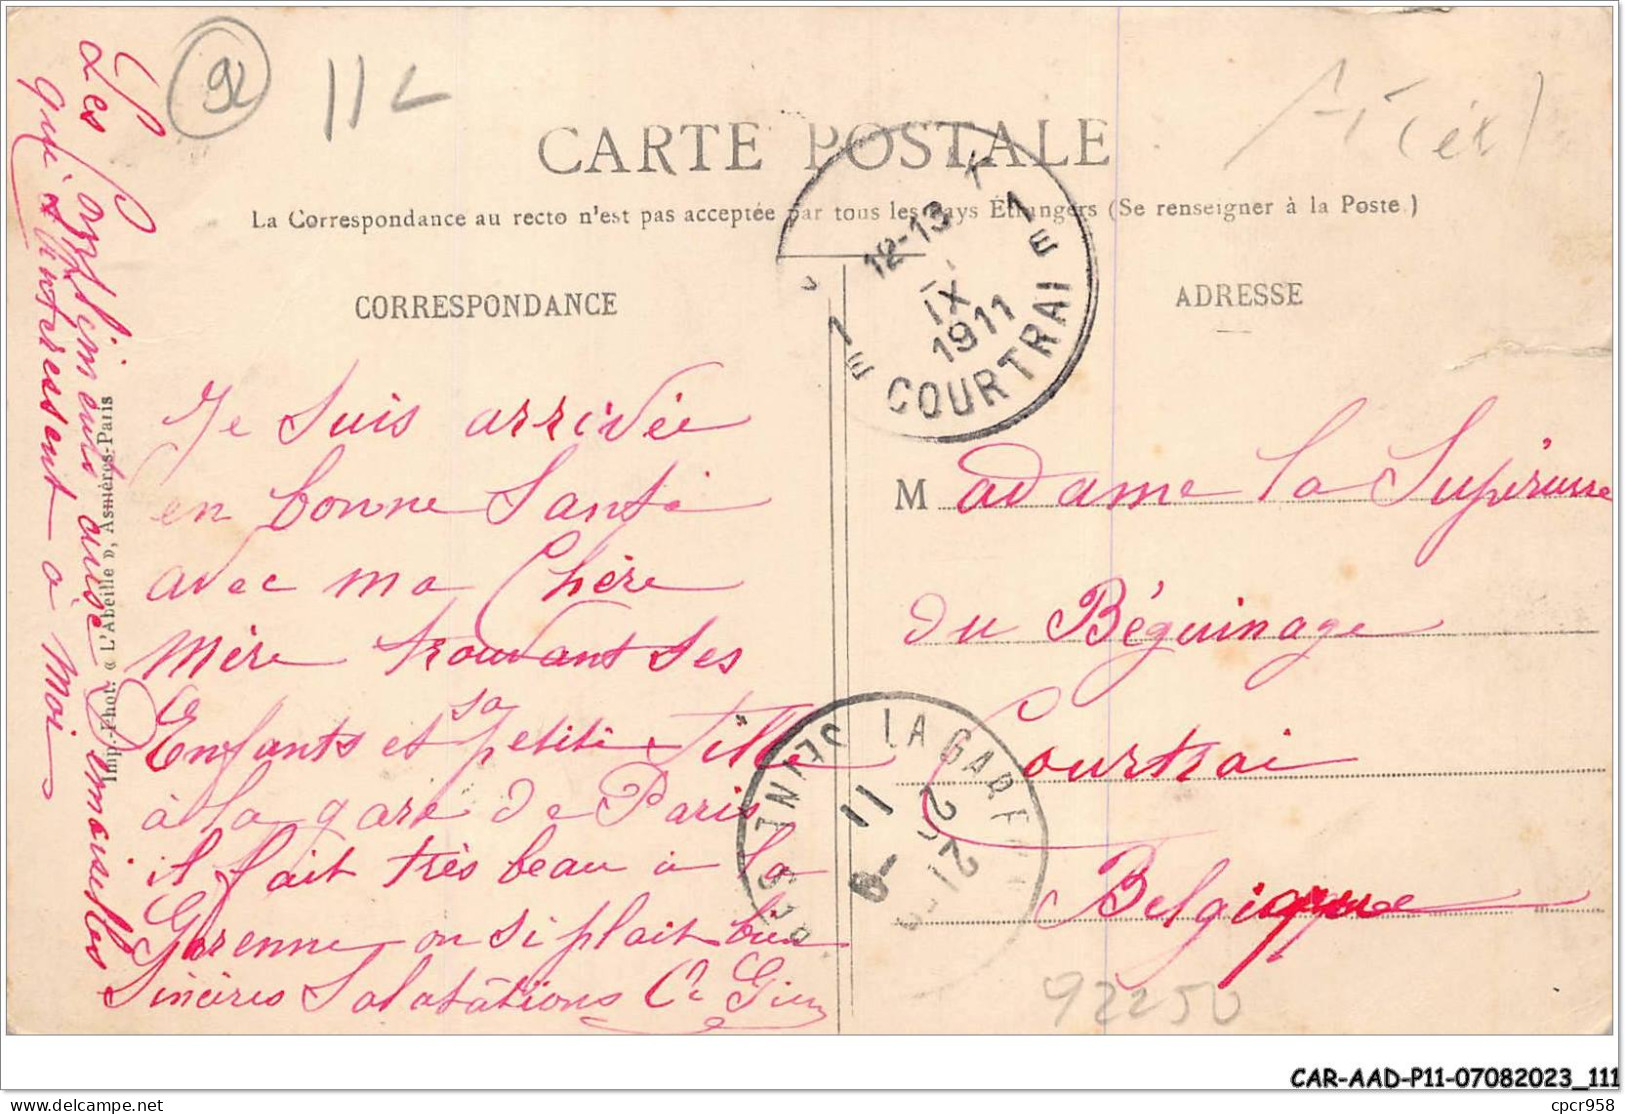 92
11L
CARTE POSTALE
La Correspondance au recto n'est pas acceptée par tous les pays Étrangers (Se renseigner à la Poste.)
CORRESPONDANCE
ADRESSE
12-13
IX
1911
1E
1E
COURTRAI
Je suis arrivée
en bonne Santé
avec ma Chère
mère trouvant ses
Enfants et sa petite fille
à la gare de Paris
il fait très beau à la
Garenne on si plait bien
Sincères Salutations
Les Compliments aussi Demoiselles
qui s'interessent à moi
Imp.-Phot. « L'Abeille », Asnières-Paris
Madame la Supérieure
du Béguinage
Courtrai
Belgique
LA GARENNE
SEINE
11
92250
CAR-AAD-P11-07082023_111
delcampe.net
cpcr958